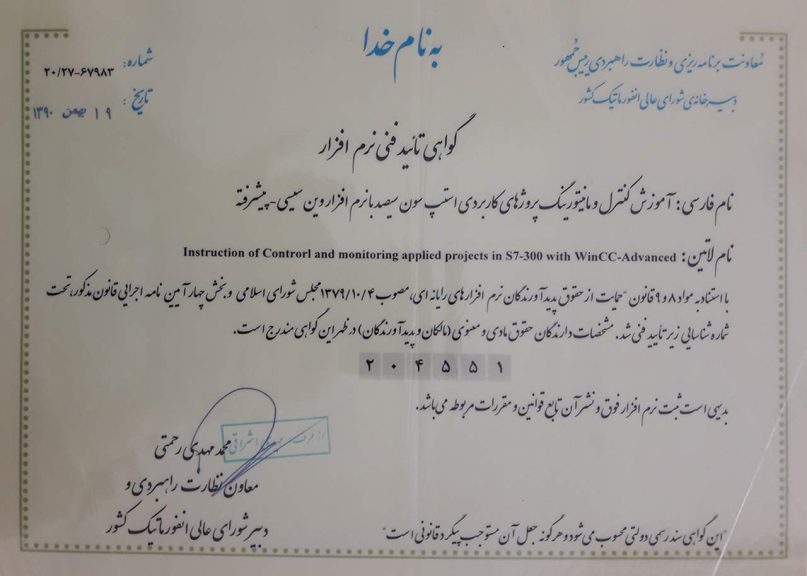 به نام خدا
معاونت برنامه ریزی و نظارت راهبردی رییس جمهور
دبیرخانه‌ی شورای عالی انفورماتیک کشور
شماره: ۲۰/۲۷-۶۷۹۸۳
تاریخ: ۱۹ بهمن ۱۳۹۰
گواهی تائید فنی نرم افزار
نام فارسی: آموزش کنترل و مانیتورینگ پروژهای کاربردی استپ سون سیصد با نرم افزار وین سیسی-پیشرفته
نام لاتین: Instruction of Controrl and monitoring applied projects in S7-300 with WinCC-Advanced
با استناد به مواد ۸ و ۹ قانون حمایت از حقوق پدیدآورندگان نرم افزارهای رایانه ای، مصوب ۱۳۷۹/۱۰/۴ مجلس شورای اسلامی و بخش چهار آیین نامه اجرایی قانون مذکور، تحت
شماره شناسایی زیر تأیید فنی شد. مشخصات دارندگان حقوق مادی و معنوی (مالکان و پدیدآورندگان) در ظهر این گواهی مندرج است.
۲۰۴۵۵۱
بدیهی است ثبت نرم افزار فوق و نشر آن تابع قوانین و مقررات مربوطه می‌باشد.
از طرف
محمد مهدی رحمتی
معاون نظارت راهبردی و
دبیر شورای عالی انفورماتیک کشور
"این گواهی سند رسمی دولتی محسوب می‌شود و هرگونه جعل آن مستوجب پیگرد قانونی است"